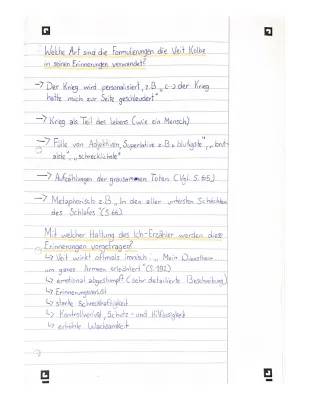 Welche Art sind die Formulierungen die Veit Kolbe
in seinen Erinnerungen verwendet?
→ Der Krieg wird personalisiert, z.B. „[...] der Krieg
hatte mich zur Seite geschleudert"
→ Krieg als Teil des Lebens (wie ein Mensch)
→ Fülle von Adjektiven, Superlative z.B. „blutigste", „brut-
alste", „schrecklichste"
→ Aufzählungen der grausamen Toten (Vgl. S.
→ Metaphorisch z.B. „In den aller untersten Schichten
des Schlafes"
Mit welcher Haltung des Ich-Erzähler werden diese
Erinnerungen vorgetragen?
↳ Veit wirkt oftmals ironisch: „Mein
um ganze Armeen erleichtert"
↳ emotional abgestumpft (sehr detailierte Beschreibung)
↳ Erinnerungsverlust
↳ starke Schreckhaftigkeit
↳ Kontrollverlust, Schutz- und Hilflosigkeit
↳ erhöhte Wachsamkeit